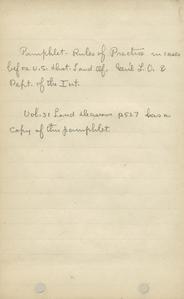 Pamphlet - Rules of Practice in cases
before U.S. dist. Land Off. Genl L.O. &
Dept. of the Int.
Vol. 31 Land decisions p527 has a
copy of this pamphlet.